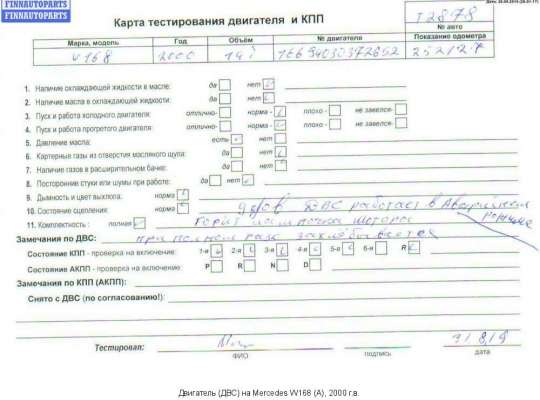 FINNAUTOPARTS
FINNAUTOPARTS
FINNAUTOPARTS
Карта тестирования двигателя и КПП
T2878
№ авто
Марка, модель Год Объём № двигателя Показание одометра
W168 2000 1.4i 16694030372652 252127
1. Наличие охлаждающей жидкости в масле: да нет
2. Наличие масла в охлаждающей жидкости: да нет
3. Пуск и работа холодного двигателя: отлично- норма - плохо - не завелся-
4. Пуск и работа прогретого двигателя: отлично- норма - плохо - не завелся-
5. Давление масла: есть нет
6. Картерные газы из отверстия масляного щупа: да нет
7. Наличие газов в расширительном бачке: да нет
8. Посторонние стуки или шумы при работе: да нет
9. Дымность и цвет выхлопа: норма
10. Состояние сцепления: норма ДВС работает в Аварийном
11. Комплектность : полная Горит лампочка мотора режиме
Замечания по ДВС: при полном газе захлёбывается
Состояние КПП - проверка на включение: 1-я 2-я 3-я 4-я 5-я 6-я R
Состояние АКПП - проверка на включение: P R N D
Замечания по КПП (АКПП):
Снято с ДВС (по согласованию!):
Тестировал:
ФИО подпись дата
Двигатель (ДВС) на Mercedes W168 (A), 2000 г.в.